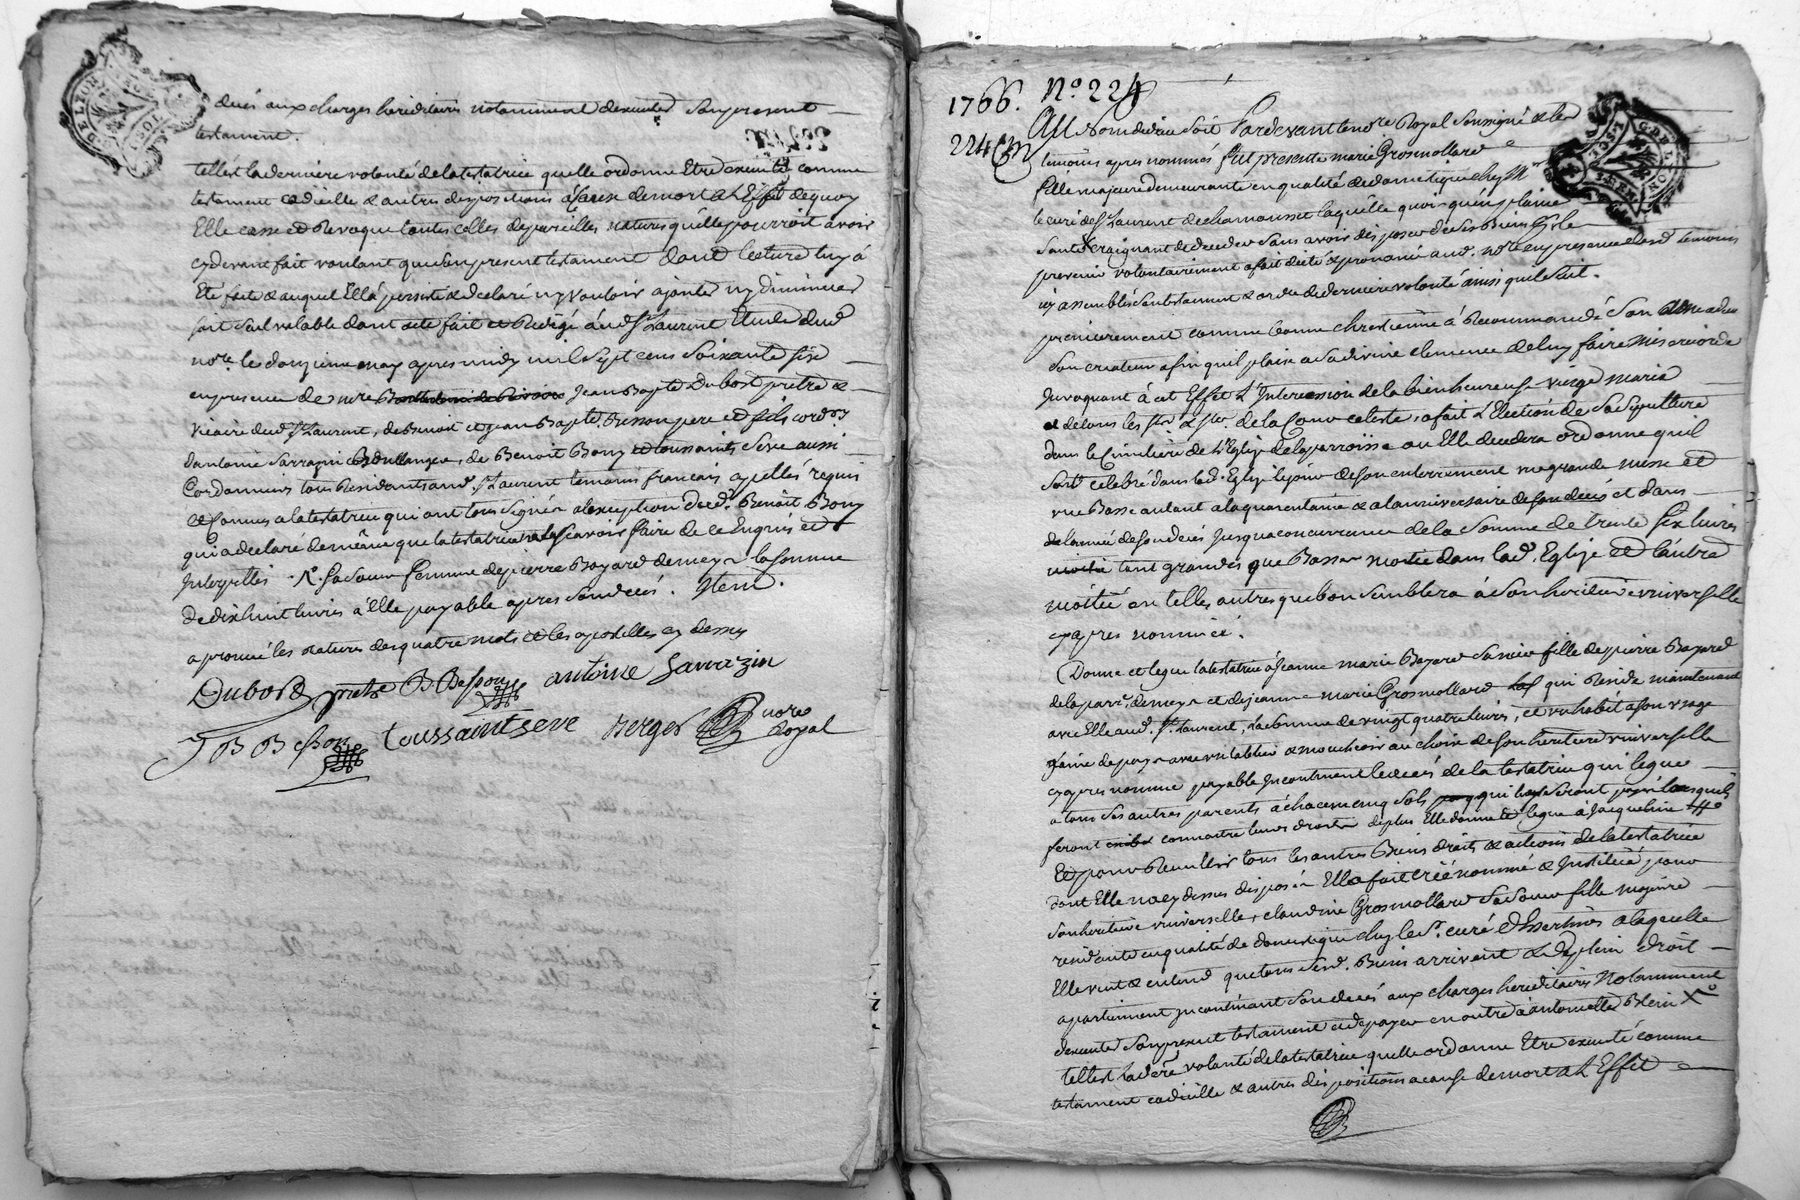 dués aux charges hereditaires notamment dexecuter son present
testament.
telle est la derniere volonté de la testatrice quelle ordonne Etre executé comme
testament codicille & autres dispositions à cause de mort a L'Effet de quoy
Elle casse et Revoque toutes celles de pareilles natures qu'elle pourroit avoir
cydevant fait voulant que son present testament dont lecture luy à
Eté faite & auquel Ella persisté & declaré ny vouloir ajouter ny diminuer
soit seul valable dont acte fait et Redigé aud. St Laurent Etude dud.
nore. le douzieme may apres midy mil sept cens soixante six
en presence de mre Jean Bapte Dubost pretre &
vicaire dud. St Laurent, de Benoit et Jean Bapte. Besson pere et fils cordrs
d'antoine Sarrazin Boullanger, de Benoit Bony et toussaint Seve aussi
Cordonniers tous Residants aud. St Laurent temoins francais apellés requis
et Connus a la testatrice qui ont tous signé a lexception dud. Benoit Bony
qui a declaré de même que la testatrice ne scavoir faire de ce Enquis et
Interpellés . sa soeur femme de pierre Bazard de meys la somme
de dix huit livres a Elle payable apres son decés. Item.
aprouvé les ratures des quatre mots et les apostilles cy dessus
Dubost pretre B Besson antoine Sarrazin
J B Besson toussaint seve Berger nore Royal
1766. No. 224
224 Au Nom de dieu soit Pardevant le nore Royal soussigné & les
temoins apres nommés fut presente marie Grosmollard
fille majeure demeurante en qualité de domestique chez Mr
le curé de St Laurent de chamousset laquelle quoi qu'en pleine
santé craignant de deceder sans avoir disposer de ses Biens Et le
prevenir volontairement a fait dicté & prononcé aud. nore en presence desd. temoins
icy assemblés son testament & ordre de derniere volonté ainsi quil suit.
premierement comme bonne chrestienne à Recommandé son ame a dieu
son createur afin quil plaise a sa divine clemence de luy faire misericorde
Invoquant à cet Effet L'Intercession de la bienheureuse vierge marie
et de tous les sts & stes. de la Cour celeste, a fait L'Election de sa sepulture
dans le Cimetiere de L'Eglise de la parroisse ou Elle decedera ordonne quil
soit celebré dans lad. Eglise le jour de son enterrement une grande messe et
une Basse autant a la quarantaine & a lanniversaire de son decés et dans
l'année de son decés jusqua concurrence de la somme de trente six livres
tant grandes que Basses moitié dans lad. Eglise et l'autre
moitié en telles autres que bon semblera à son heritiere universelle
cyapres nommée.
Donne et legue la testatrice à Jeanne marie Bazard sa niece fille de pierre Bazard
de la parr. de meys et de jeanne marie Grosmollard qui Reside maintenant
avec Elle aud. St. Laurent, la somme de vingt quatre livres, et un habit a son usage
garni de pays avec un tablier & mouchoir au choix de son heritiere universelle
cyapres nommé payable Incontinent le decés de la testatrice qui legue
a tous ses autres parents à chacun cinq sols qui leur seront payé lorsquils
feront connoitre leurs droits de plus Elle donne et legue à Jacqueline
Et pour Recueillir tous les autres Biens droits & actions de la testatrice
dont Elle na cy dessus disposé Ella fait créé nommé & Institué pour
son heritiere universelle, claudine Grosmollard sa soeur fille majeure
residante en qualité de domestique chez le Sr. curé D'haertines a laquelle
Elle veut & entend que tous sesd. Biens arrivent & de plein droit
apartiennent Incontinent son decés aux charges hereditaires Notamment
dexecuter son present testament et de payer en outre à antoinette Blein
telle est la dere volonté de la testatrice quelle ordonne Etre executé comme
testament codicille & autres dispositions a cause de mort a L'Effet